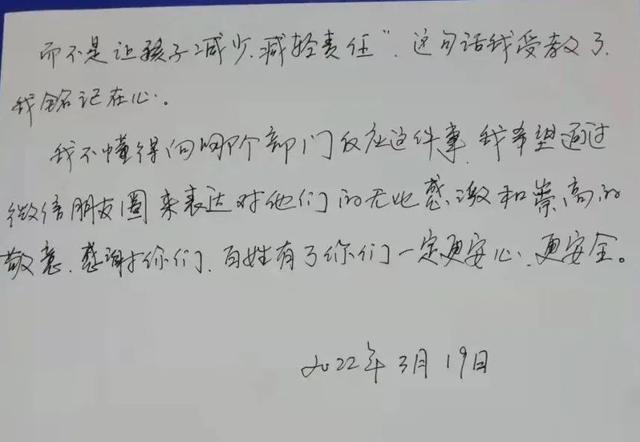 而不是让孩子减少.减轻责任”.这句话我受教了.
我铭记在心.
我不懂得向哪个部门反应这件事.我希望通过
微信朋友圈来表达对他们的无比感激和崇高的
敬意.感谢你们.百姓有了你们一定更安心.更安全。
2022年3月19日